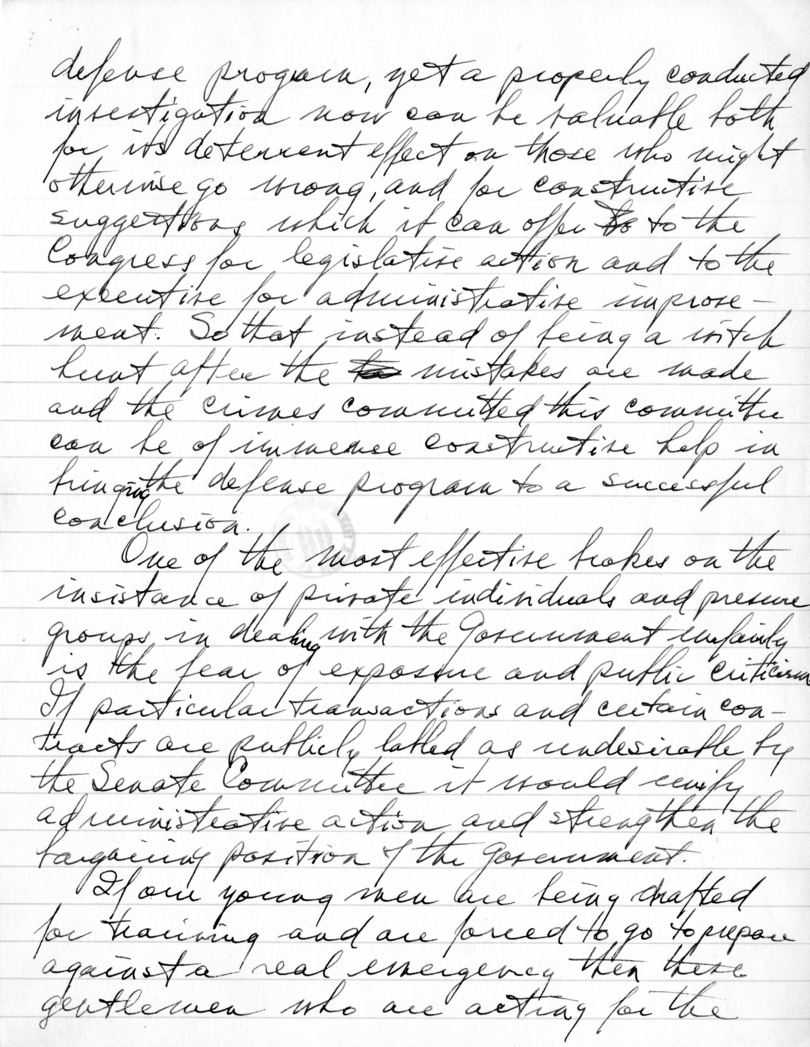 defense program, yet a properly conducted
investigation now can be valuable both
for its deterrent effect on those who might
otherwise go wrong, and for constructive
suggestions which it can offer to to the
Congress for legislative action and to the
executive for administrative improve-
ment. So that instead of being a witch
hunt after the mistakes are made
and the crimes committed this committee
can be of immence constructive help in
bringing the defense program to a successful
conclusion.
One of the most effective brakes on the
insistance of private individuals and pressure
groups in dealing with the Government unfairly
is the fear of exposure and public criticism
If particular transactions and certain con-
tracts are publicly labled as undesirable by
the Senate Committee it would unify
administrative action and strengthen the
bargaining position of the Government.
If our young men are being drafted
for training and are forced to go to prepare
against a real emergency then these
gentlemen who are acting for the